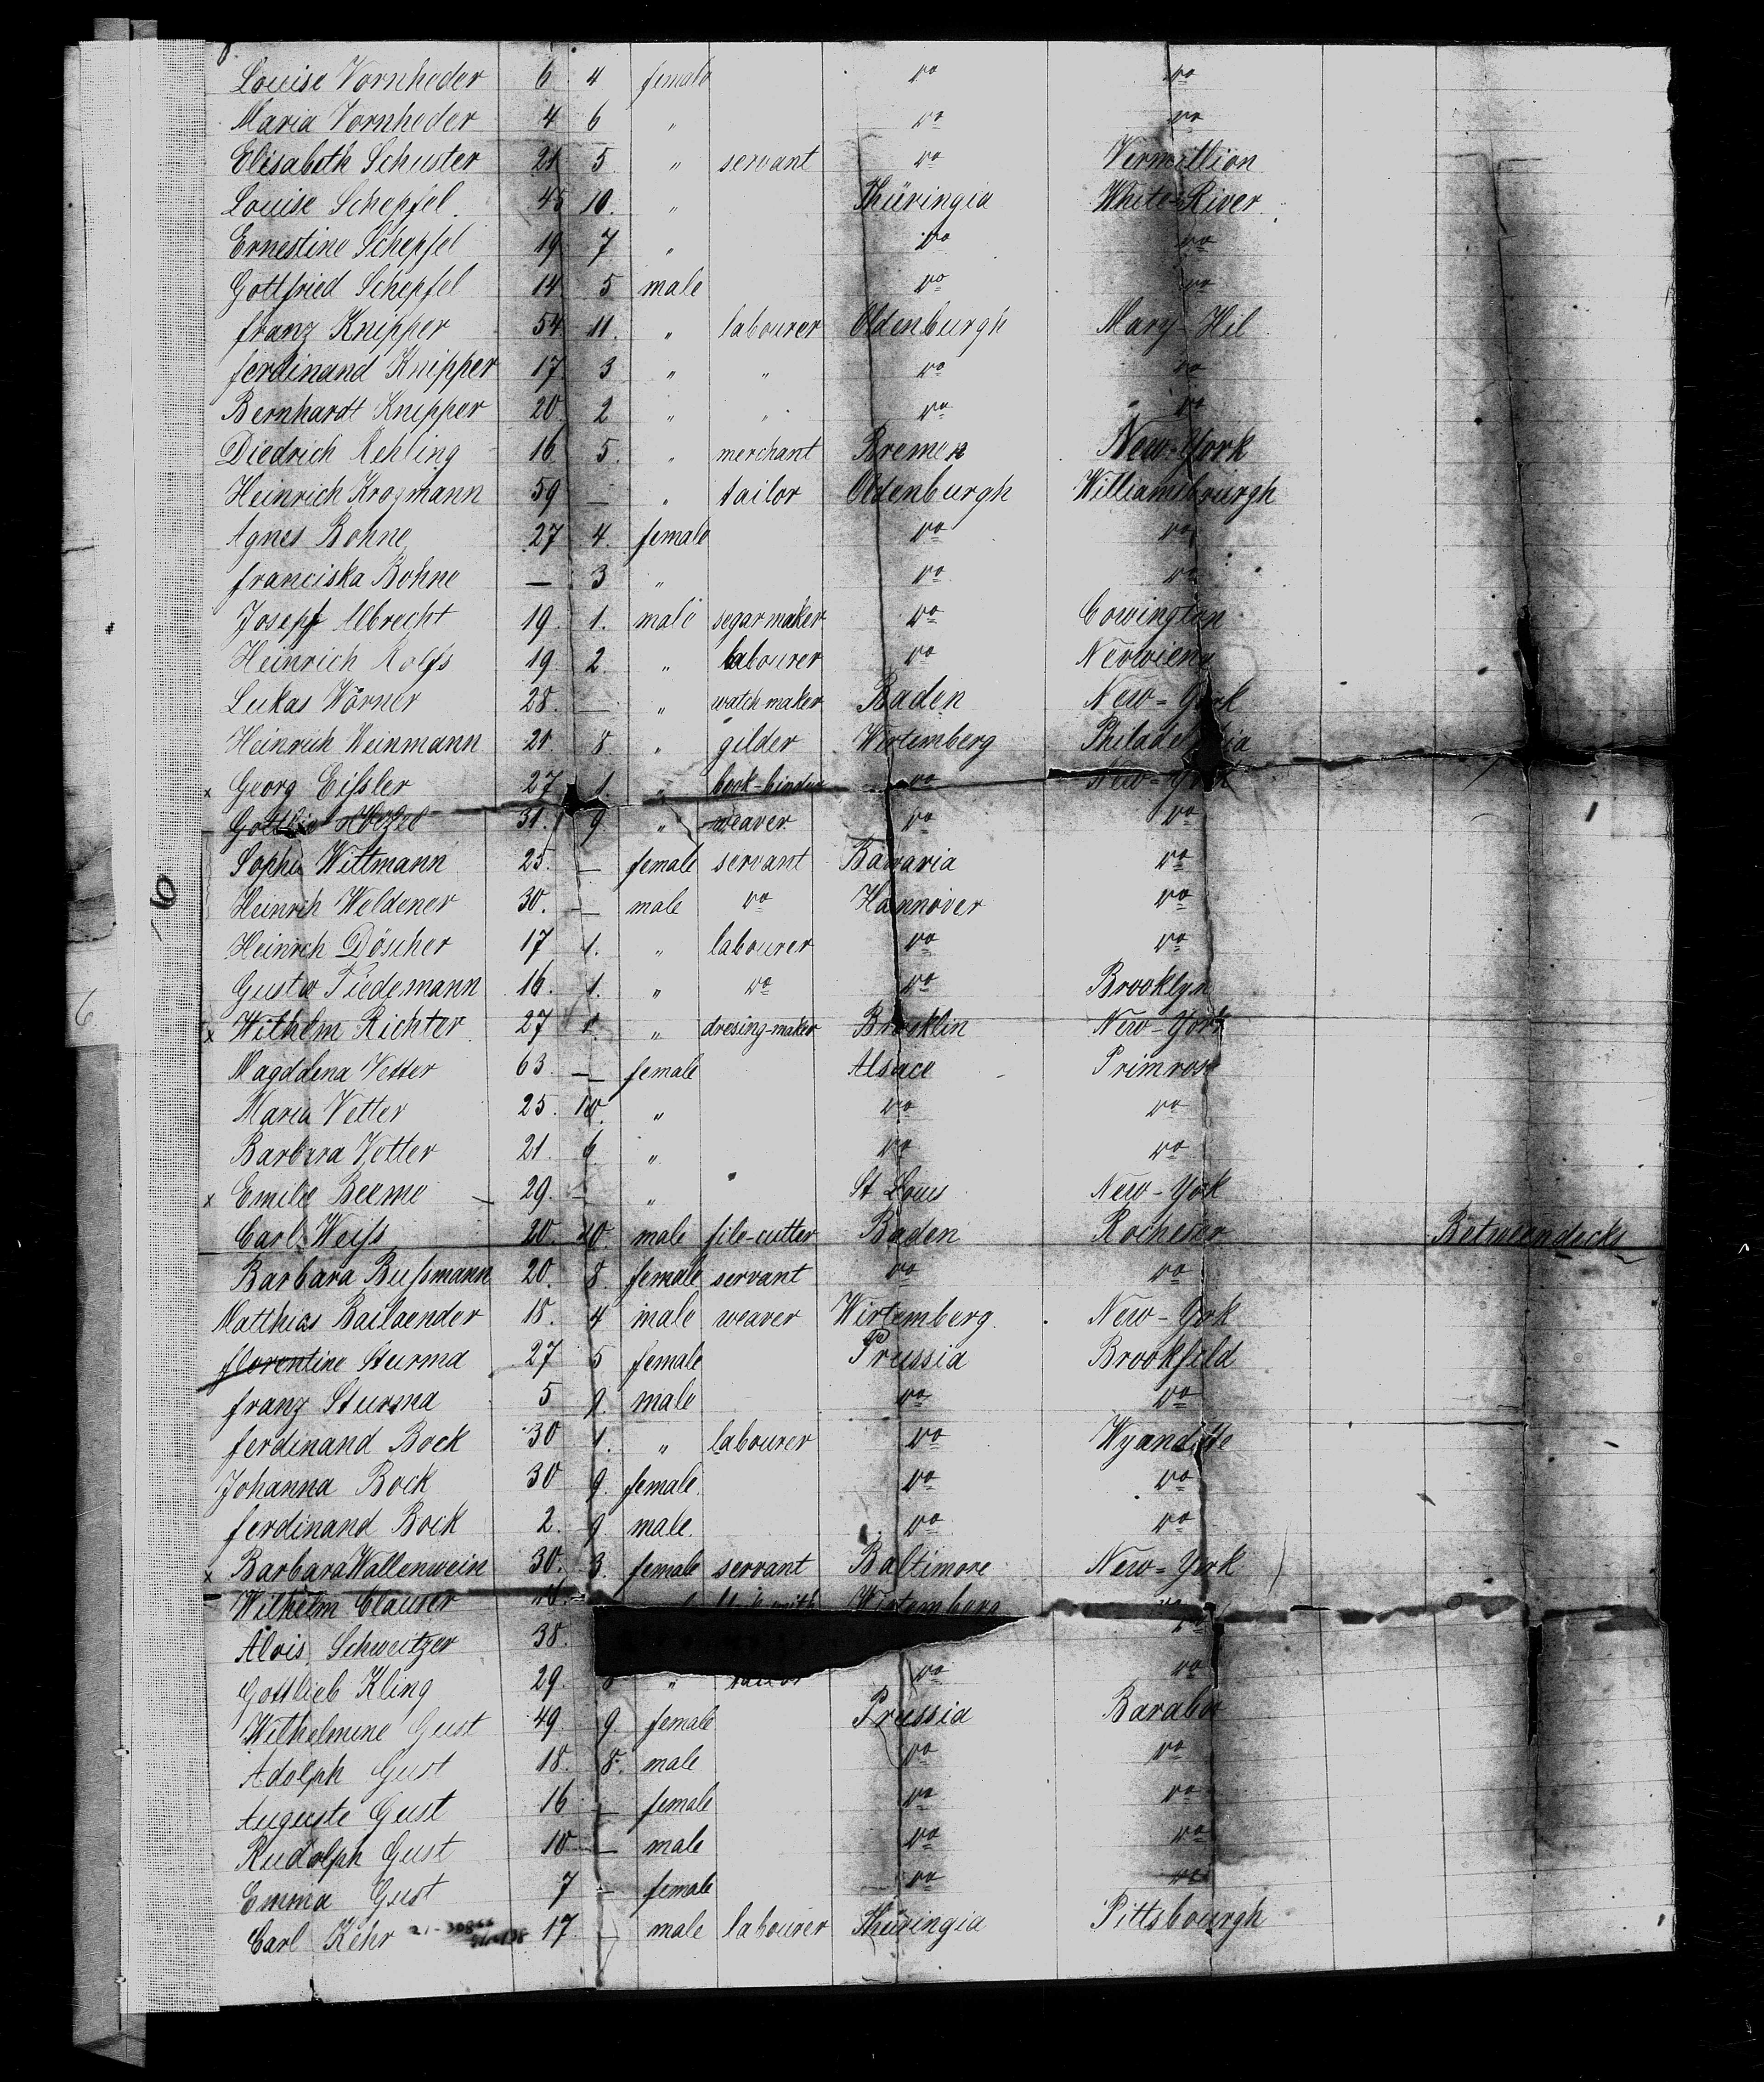 Louise Vornheder 6 4 female do do
Maria Vornheder 4 6 " do do
Elisabeth Schuster 21 5 " servant do Vermillion
Louise Schepfel 45 10. " Thüringia White-River
Ernestine Schepfel 19 7 " do do
Gottfried Schepfel 14 5 male do do
franz Knipper 54 11. " labourer Oldenburgh Mary-Hil
ferdinand Knipper 17 3 " " do do
Bernhardt Knipper 20 2 " " do do
Diedrich Rehling 16 5. " merchant Bremen New-York
Heinrich Krogmann 59 — " tailor Oldenburgh Williamsbourgh
Agnes Bohne 27 4. female do do
franciska Bohne — 3 " do do
Josepf Albrecht 19 1. male segar maker do Cowington
Heinrich Rolfs 19 2 " labourer do
Lukas Wörner 28. — " watch-maker Baden New=York
Heinrich Weinmann 21 8 " gilder Wirtemberg Philadelphia
x Georg Eissler 27 1. " book-binder do New=York
Gottlieb 31. 9. " weaver do do
Sophie Wittmann 25. — female servant Bavaria do
Heinrich Weldener 30. — male do Hannover do
Heinrich Döscher 17 1. " labourer do do
Gustav Tiedemann 16. 1. " do do Brooklyn
x Wilhelm Richter 27 1. " dresing-maker Brooklin New-York
Magdalena Vetter 63. — female Alsace Primrose
Maria Vetter 25. 10. " do do
Barbara Vetter 21. 6. " do do
x Emilie Beeme 29. — " St Louis New-York
Carl Weiss 20. 10. male file-cutter Baden Rochester Betweendecks
Barbara Bussmann 20. 8. female servant do do
Matthias Bailaender 18. 4 male weaver Wirtemberg New-York
florentine Sturma 27 5 female Prussia Brookfeld
franz Sturma 5 9. male do do
ferdinand Bock 30 1. " labourer do Wyandotte
Johanna Bock 30 9. female do do
ferdinand Bock 2. 9 male. do do
x Barbara Wallenwein 30. 3. female servant Baltimore New=York
Wilhelm Clauser 16. Wirtemberg do
Alois Schweitzer 38. do
Gottlieb Kling 29. 8 " tailor do do
Wilhelmine Gust 49. 9. female Prussia Baraboo
Adolph Gust 18. 8. male do do
Auguste Gust 16 — female do do
Rudolph Gust 10 — male do do
Emma Gust 7 — female do do
Carl Kehr 17. — male labourer Thüringia Pittsbourgh